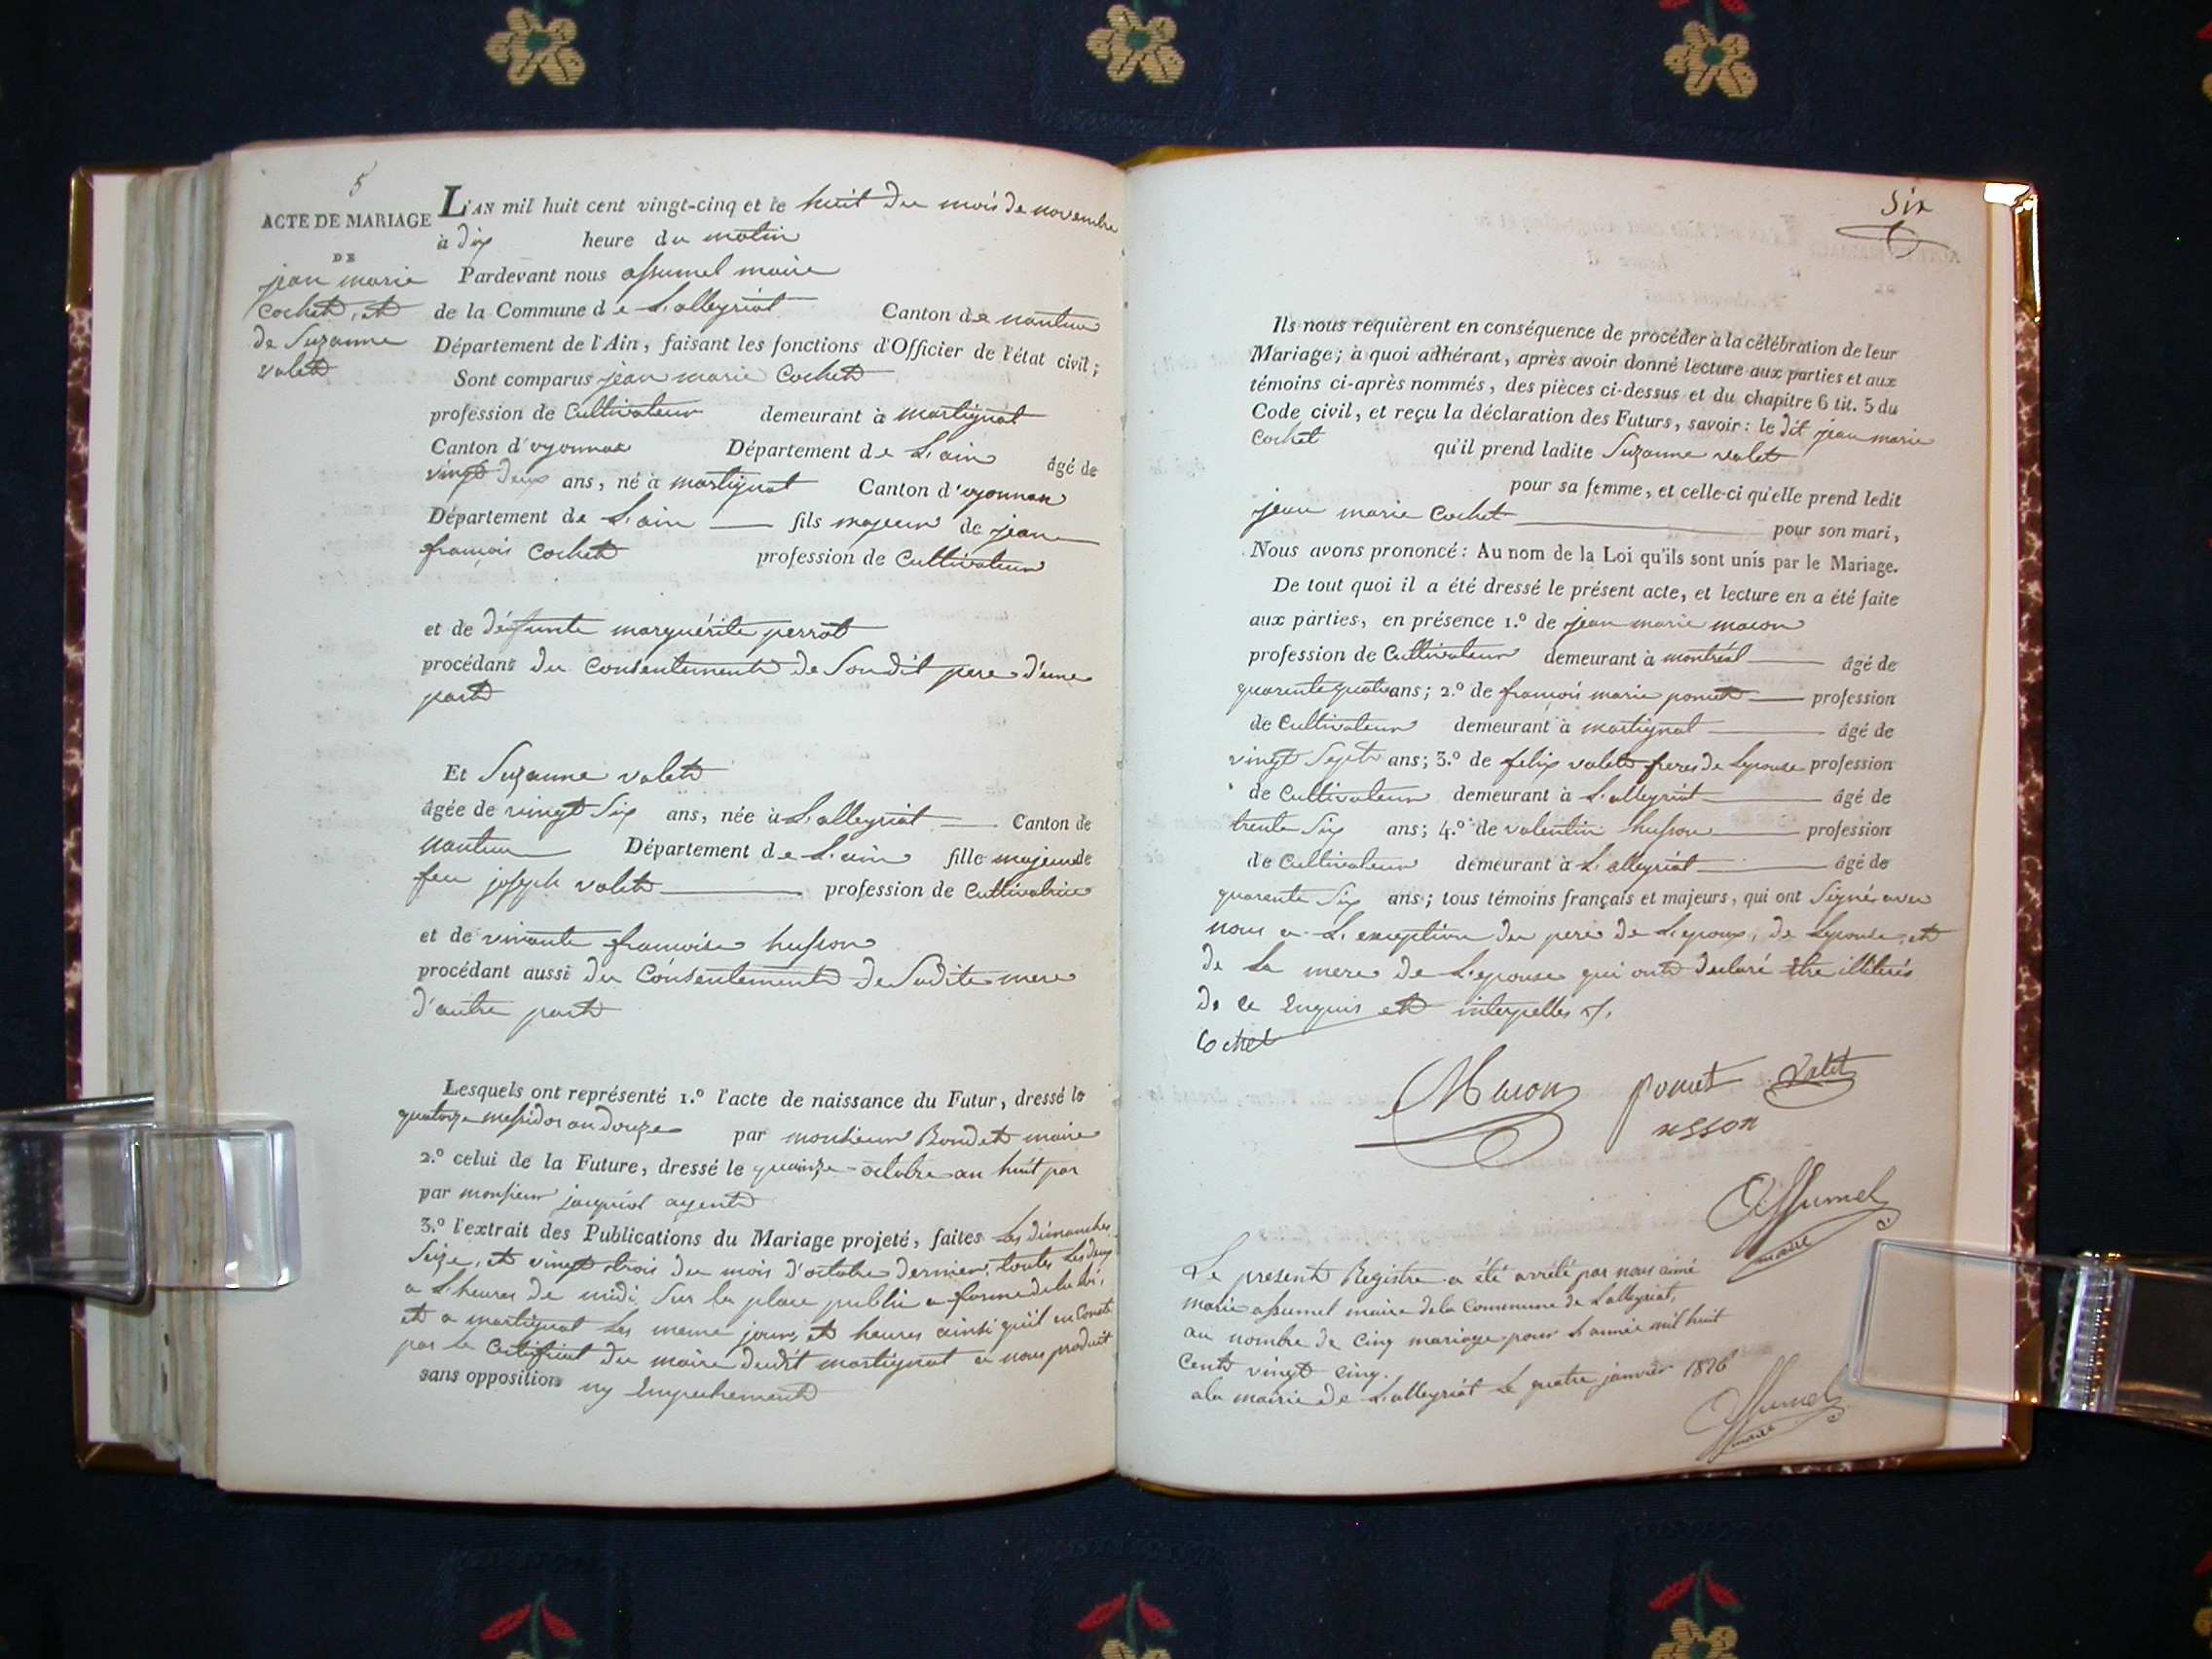 5
ACTE DE MARIAGE
DE
jean marie
Cochet, et
de Suzanne
valet
L'AN mil huit cent vingt-cinq et le huit du mois de novembre
à dix heure du matin
Pardevant nous assumel maire
de la Commune de L'alleyriat Canton de nantua
Département de l'Ain, faisant les fonctions d'Officier de l'état civil;
Sont comparus jean marie Cochet
profession de Cultivateur demeurant à martignat
Canton d'oyonnax Département de L'ain âgé de
vingt deux ans, né à martignat Canton d'oyonnax
Département de L'ain fils majeur de jean
françois Cochet profession de Cultivateur
et de défunte marguérite perrot
procédant du Consentement de Son dit pere d'une
part
Et Suzanne valet
âgée de vingt Six ans, née à L'alleyriat Canton de
nantua Département de L'ain fille majeure de
feu joseph valet profession de Cultivatrice
et de vivante françoise husson
procédant aussi du Consentement de Sadite mere
d'autre part
Lesquels ont représenté 1.º l'acte de naissance du Futur, dressé le
quatorze messidor an douze par monsieur Bondet maire
2.º celui de la Future, dressé le quinze octobre an huit par
par monsieur jacquiot agent
3.º l'extrait des Publications du Mariage projeté, faites Les dimanches
Seize, et vingt trois du mois d'octobre dernier, toutes Les deux
a L'heure de midi, Sur la place public a forme de la loi,
et a martignat Les meme jours et heures ainsi qu'il en Conste
par le Certificat du maire dudit martignat a nous produit
sans opposition ny Empechement
Six
Ils nous requièrent en conséquence de procéder à la célébration de leur
Mariage; à quoi adhérant, après avoir donné lecture aux parties et aux
témoins ci-après nommés, des pièces ci-dessus et du chapitre 6 tit. 5 du
Code civil, et reçu la déclaration des Futurs, savoir: le dit jean marie
Cochet qu'il prend ladite Suzanne valet
pour sa femme, et celle-ci qu'elle prend ledit
jean marie Cochet pour son mari,
Nous avons prononcé: Au nom de la Loi qu'ils sont unis par le Mariage.
De tout quoi il a été dressé le présent acte, et lecture en a été faite
aux parties, en présence 1.º de jean marie macon
profession de Cultivateur demeurant à montréal âgé de
quarente quatre ans; 2.º de françois marie poncet profession
de Cultivateur demeurant à martignat âgé de
vingt Sept ans; 3.º de felix valet freres de Lepouse profession
de Cultivateur demeurant à L'alleyriat âgé de
trente Six ans; 4.º de valentin husson profession
de Cultivateur demeurant à L'alleyriat âgé de
quarente Six ans; tous témoins français et majeurs, qui ont Signés avec
nous a L'exception du pere de L'epoux, de Lepouse, et
de La mere de L'epouse qui ont déclaré être illiterés
de ce Enquis et interpelles
Cochet
Macon poncet Valet
usson
Assumel
maire
Le present Registre a été arrété par nous aimé
marie assumel maire de la Commune de Lalleyriat,
au nombre de Cinq mariage pour L'année mil huit
Cent vingt cinq.
a la mairie de L'alleyriat Le quatre janvier 1826
Assumel
maire